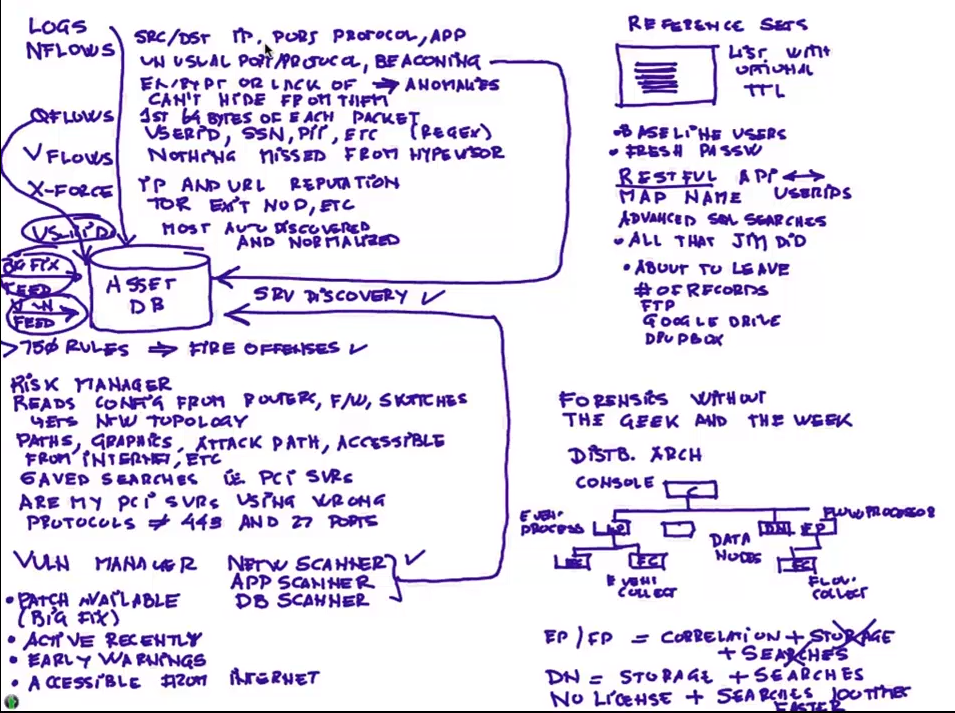 LOGS
NFLOWS
SRC/DST IP, PORT PROTOCOL, APP
UNUSUAL PORT/PROTOCOL, BEACONING
OR LACK OF ⇒ ANOMALIES
CAN'T HIDE FROM THEM
QFLOWS
1ST 64 BYTES OF EACH PACKET
USERID, SSN, PII, ETC (REGEX)
VFLOWS
NOTHING MISSED FROM
X-FORCE
IP AND URL REPUTATION
TOR EXIT NOD, ETC
MOST AUTO DISCOVERED
AND NORMALIZED
USERID
BIG FIX
FEED
FEED
ASSET
DB
SRV DISCOVERY ✓
>750 RULES ⇒ FIRE OFFENSES ✓
RISK MANAGER
READS CONFIG FROM ROUTERS, F/W, SWITCHES
GETS NEW TOPOLOGY
PATHS, GRAPHICS, ATTACK PATH, ACCESSIBLE
FROM INTERNET, ETC
SAVED SEARCHES I.E. PCI SVRS
ARE MY PCI SVRS USING WRONG
PROTOCOLS ≠ 443 AND 27 PORTS
VULN MANAGER
NETW SCANNER ✓
APP SCANNER
DB SCANNER
• PATCH AVAILABLE
(BIG FIX)
• ACTIVE RECENTLY
• EARLY WARNINGS
• ACCESSIBLE FROM INTERNET
REFERENCE SETS
LIST WITH
OPTIONAL
TTL
• BASELINE USERS
• FRESH PASSW
RESTFUL API ↔
USERIDS
MAP NAME
ADVANCED SQL SEARCHES
• ALL THAT JIM DID
• ABOUT TO LEAVE
# OF RECORDS
FTP
GOOGLE DRIVE
DROPBOX
FORENSICS WITHOUT
THE GEEK AND THE WEEK
DISTB. ARCH
CONSOLE C
EVENT
PROCESS EP
DN FP
FLOW PROCESSOR
DATA
NODES
EC EC FC
EVENT
COLLECT
FLOW
COLLECT
EP/FP = CORRELATION + STORAGE
+ SEARCHES
DN = STORAGE + SEARCHES
NO LICENSE + SEARCHES
FASTER